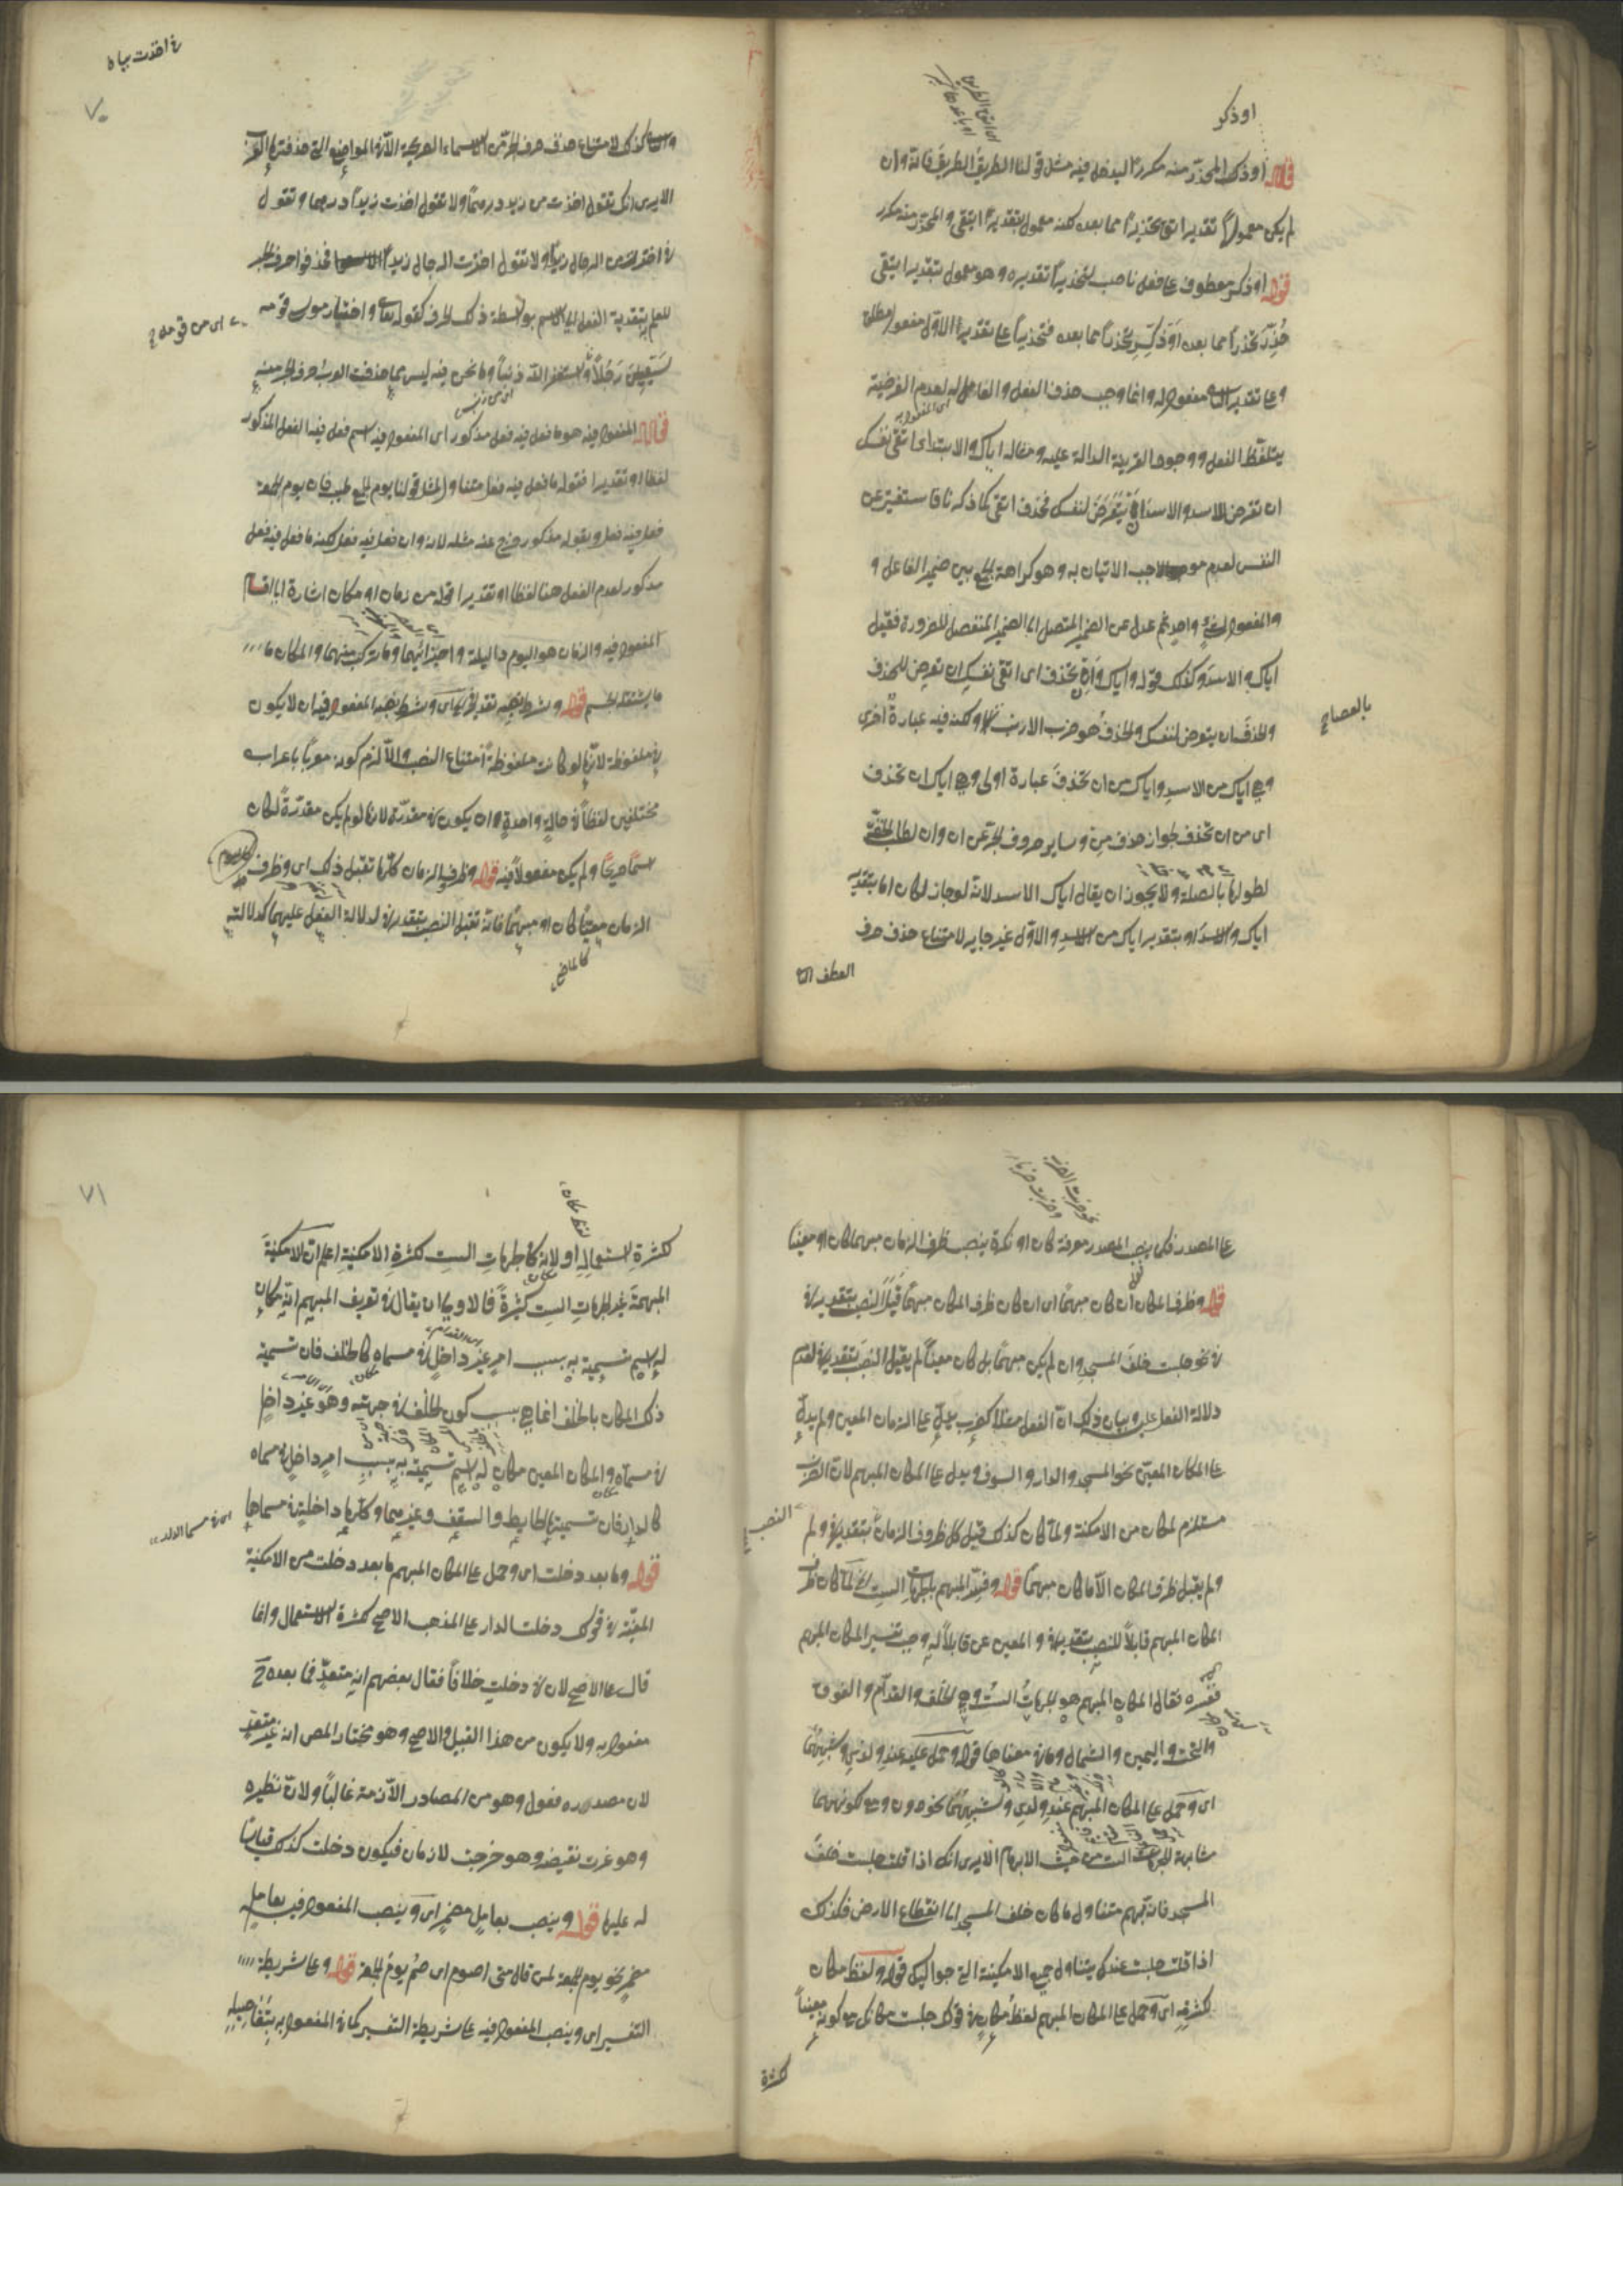 او ذكر
قوله او ذكر المحذر منه مكررا ليدخل فيه مثل قولنا الطريق الطريق فانه وان
لم يكن معمولا بتقدير اتق تحذيرا مما بعده لكنه معمول بتقدير اتق والمحذر منه مكرر
قوله او ذكر معطوف على فعل ناصب لتحذيرا تقديره وهو معمول بتقدير اتق
حُذِّرَ تحذيرا مما بعده او ذكر تحذيرا مما بعده فتحذيرا على تقدير الاول مفعول مطلق
وعلى تقدير الثاني مفعول له وانما وجب حذف الفعل والفاعل لعدم الفرصة
بتلفظ الفعل ووجود القرينة الدالة عليه ومثاله اياك والاسد اى اتق نفسك
ان تتعرض للاسد والاسد ان يتعرض لنفسك فحذف اتق لما ذكرنا فاستغنى عن
النفس لعدم موجب الاتيان به وهو كراهة الجمع بين ضمير الفاعل و
والمفعول لشئ واحد ثم عدل عن الضمير المتصل الى الضمير المنفصل للضرورة فقيل
اياك والاسد وكذلك قوله واياك وان تحذف اى اتق نفسك ان تتعرض للحذف
والحذف ان يتعرض لنفسك والحذف هو ضرب الارنب ولكنه فيه عبارة اخرى
بالعصا
وهى اياك من الاسد واياك من ان تحذف عبارة اولى وهى اياك ان تحذف
اى من ان تحذف لجواز حذف من وساير حروف الجر عن ان وان لطلب الخفة
لطولها بالصلة ولا يجوز ان يقال اياك الاسد لانه لو جاز لكان اما بتقدير
اياك والاسد او بتقدير اياك من الاسد والاول غير جايز لامتناع حذف حرف
العطف
٧٠
وكذلك لامتناع حذف حرف الجر من الاسماء الصريحة الا فى المواضع التى حذفتها العرب
الا يرى انك تقول اخذت من زيد درهما ولا تقول اخذت زيدا درهما وتقول
فى اخترت من الرجال زيدا ولا تقول اخذت الرجال زيدا فحذفوا حرف الجر
للعلم بتعدية الفعل الى الاسم بواسطة ذلك الحرف كقوله تعالى واختار موسى قومه
اى من قومه
سبعين رجلا واستغفر الله ذنبا وما نحن فيه ليس مما حذفت العرب حرف الجر منه
قوله المفعول فيه هو ما فعل فيه فعل مذكور اى المفعول فيه اسم فعل فيه الفعل المذكور
لفظا او تقديرا فقوله ما فعل فيه فعل متناول لمثل قولنا يوم الجمعة طيب فان يوم الجمعة
فعل فيه فعل وبقوله مذكور خرج عنه مثله لانه وان فعل فيه فعل لكنه ما فعل فيه فعل
مذكور لعدم الفعل هنا لفظا او تقديرا قوله من زمان او مكان اشارة الى اقسام
المفعول فيه والزمان هو اليوم والليلة واجزائهما وما تركب منهما والمكان ما
ما يشغله الجسم قوله وشرط نصبه تقدير فى اى وشرط نصب المفعول فيه ان لا يكون
فى ملفوظة لانها لو كانت ملفوظة امتناع النصب والا لزم كونه معربا باعراب
مختلفين لفظا فى حالة واحدة وان يكون فى مقدرة لانها لو لم يكن مقدرة لكان
اسما صريحا ولم يكن مفعولا فيه قوله وظروف الزمان كلها تقبل ذلك اى وظروف
الزمان معينا كان او مبهما فانه تقبل النصب بتقدير فى لدلالة الفعل عليهما كدلالته
على المصدر فكما ينصب المصدر معرفة كان او نكرة ينصب ظرف الزمان مبهما كان او معينا
قوله وظرف المكان ان كان مبهما اى ان كان ظرف المكان مبهما قبل النصب بتقدير فى
فى نحو جلست خلف المسجد وان لم يكن مبهما بل كان معينا لم يقبل النصب بتقدير فى لعدم
دلالة الفعل عليه وبيان ذلك ان الفعل مثلا كضرب يدل على الزمان المعين ولم يدل
على المكان المعين نحو المسجد والدار والسوق ويدل على المكان المبهم لان الضرب
مستلزم لمكان من الامكنة ولما كان كذلك قبل كل ظروف الزمان بتقدير فى ولم
النصب
ولم يقبل ظرف المكان الا ما كان مبهما قوله وفسر المبهم بالجهات الست لما كان ظرف
المكان المبهم قابلا للنصب بتقدير فى والمعين غير قابلا له وجب تفسير المكان المبهم
ففسره فقال المكان المبهم هو الجهات الست وهى الخلف والقدام والفوق
والتحت واليمين والشمال وما فى معناها قوله وحمل عليه عند ولدى وشبههما
اى وحمل على المكان المبهم عند ولدى وشبههما نحو دون ومع لكونهما
مشابهة للجهات الست من حيث الابهام الا يرى انك اذا قلت جلست خلف
المسجد فانه مبهم متناول ما كان خلف المسجد الى انقطاع الارض فكذلك
اذا قلت جلست عندك يتناول جميع الامكنة التى حواليك قوله ولفظ مكان
لكثرته اى وحمل على المكان المبهم لفظ مكان فى قولك جلست مكانك مع كونه معينا
لكثرة
٧١
لكثرة استعماله او لانه كالجهات الست لكثرة الامكنة اعلم ان الامكنة
المبهمة غير الجهات الست كثيرة فالاولى ان يقال فى تعريف المبهم انه مكان
له اسم تسمية به بسبب امر غير داخل فى مسماه كالخلف فان تسمية
ذلك المكان بالخلف انما هى بسبب كون الخلف فى جهته وهو غير داخل
فى مسماه والمكان المعين مكان له اسم تسمية به بسبب امر داخل فى مسماه
كالدار فان تسميتها بالحايط والسقف وغيرهما وكلها داخلة فى مسماها
قوله وما بعد دخلت اى وحمل على المكان المبهم ما بعد دخلت من الامكنة
المعينة فى قولك دخلت الدار على المذهب الاصح لكثرة الاستعمال وانما
قال على الاصح لان فى دخلت خلافا فقال بعضهم انه متعد فما بعده ح
مفعول به ولا يكون من هذا القبيل والاصح وهو مختار المص انه غير متعد
لان مصدره فعول وهو من المصادر اللازمة غالبا ولان نظيره
وهو غرت نقيضه وهو خرجت لازمان فيكون دخلت كذلك قياسا
له عليها قوله وينصب بعامل مضمر اى وينصب المفعول فيه بعامل
مضمر نحو يوم الجمعة لمن قال متى اصوم اى صم يوم الجمعة قوله وعلى شريطة
التفسير اى وينصب المفعول فيه على شريطة التفسير كما فى المفعول به بتفاصيله